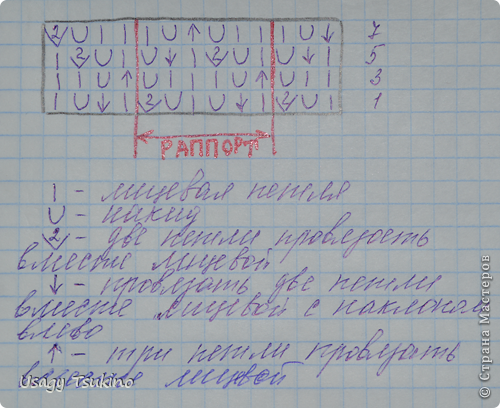 2 U I I I U ↑ U I I I U ↓ 7
5
I I U ↑ U I I I U ↑ U I I 3
I U ↓ I 2 U I U ↓ I 2 U I 1
РАППОРТ
I – лицевая петля
U – накид
2 – две петли провязать
вместе лицевой
↓ – провязать две петли
вместе лицевой с наклоном
влево
↑ – три петли провязать
вместе лицевой
Usagy Tsukino
© Страна Мастеров